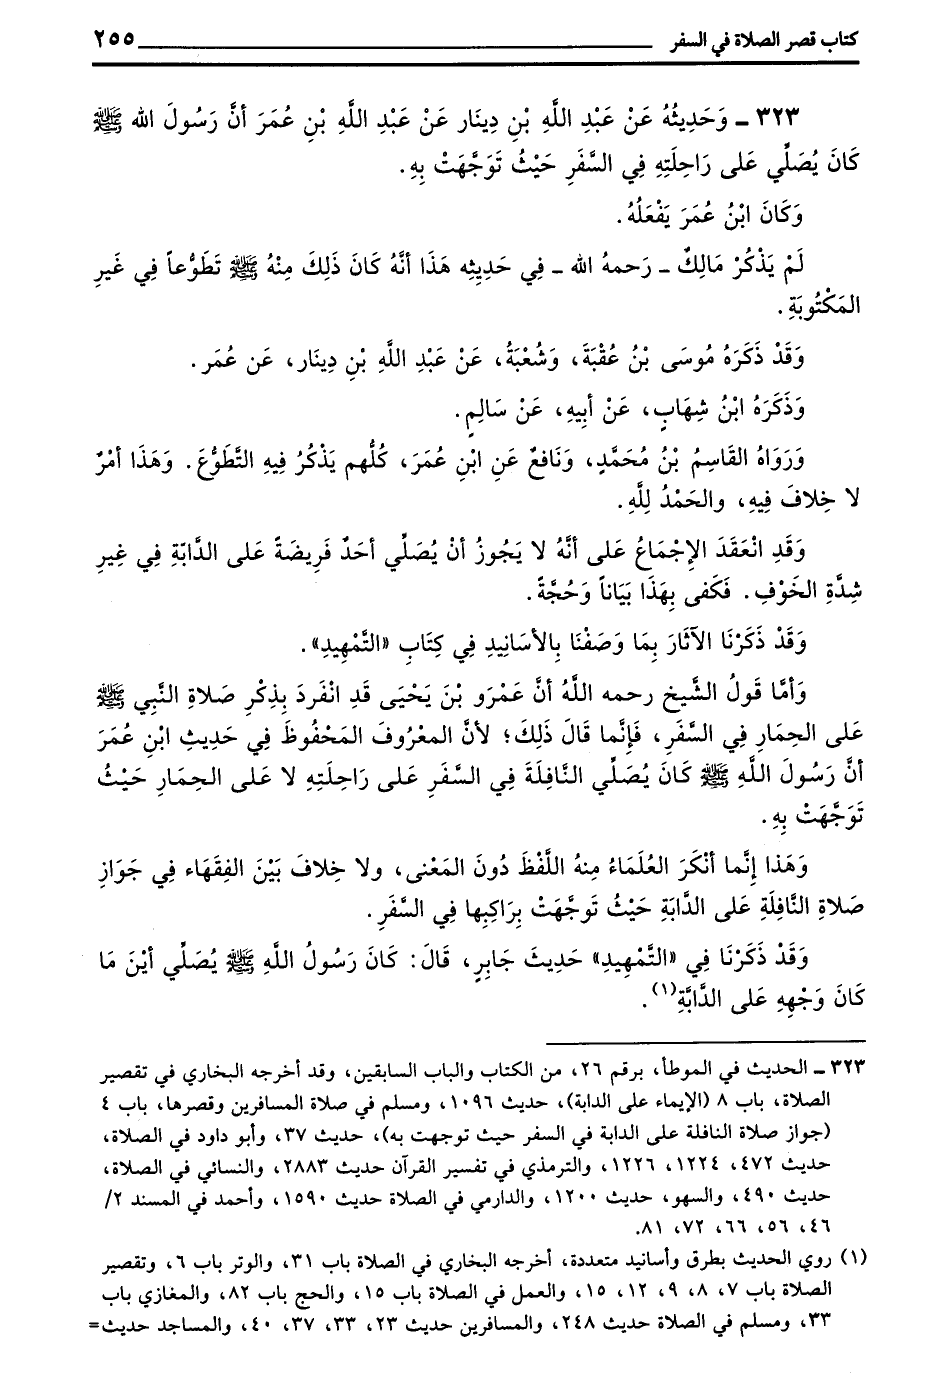 كتاب قصر الصلاة في السفر ٢٥٥
٣٢٣ ـ وَحَدِيثُهُ عَنْ عَبْدِ اللَّهِ بْنِ دِينَار عَنْ عَبْدِ اللَّهِ بْنِ عُمَرَ أنَّ رَسُولَ الله ﷺ
كَانَ يُصَلِّي عَلى رَاحِلَتِهِ فِي السَّفَرِ حَيْثُ تَوَجَّهَتْ بِهِ.
وَكَانَ ابْنُ عُمَرَ يَفْعَلُهُ.
لَمْ يَذْكُرْ مَالِكٌ ـ رَحمهُ الله ـ فِي حَدِيثِه هَذَا أنَّهُ كَانَ ذَلِكَ مِنْهُ ﷺ تَطَوُّعاً فِي غَيرِ
المَكْتُوبَةِ.
وَقَدْ ذَكَرَهُ مُوسَى بْنُ عُقْبَةَ، وَشُعْبَةُ، عَنْ عَبْدِ اللَّهِ بْنِ دِينَار، عَن عُمَر.
وَذَكَرَهُ ابْنُ شِهَابٍ، عَنْ أبِيهِ، عَنْ سَالِمٍ.
وَرَوَاهُ القَاسِمُ بْنُ مُحَمَّدٍ، وَنَافعٌ عَنِ ابْنِ عُمَرَ، كُلُّهم يَذْكُرُ فِيهِ التَّطَوُّعَ. وَهَذَا أمْرٌ
لا خِلافَ فِيهِ، والحَمْدُ لِلَّهِ.
وَقَدِ انْعَقَدَ الإِجْمَاعُ عَلى أنَّهُ لا يَجُوزُ أنْ يُصَلِّي أحَدٌ فَرِيضَةً عَلى الدَّابّةِ فِي غِيرِ
شِدَّةِ الخَوْفِ. فَكَفى بِهَذَا بَيَاناً وَحُجَّةً.
وَقَدْ ذَكَرْنَا الآثَارَ بِمَا وَصَفْنَا بِالأسَانِيدِ فِي كِتَابِ «التَّمْهِيدِ».
وَأمَّا قَولُ الشَّيخِ رحمه اللَّهُ أنَّ عَمْرَو بْنَ يَحْيَى قَدِ انْفَردَ بِذِكْرِ صَلاةِ النَّبِي ﷺ
عَلى الحِمَارِ فِي السَّفَرِ، فَإِنَّما قَالَ ذَلِكَ؛ لأنَّ المَعْرُوفَ المَحْفُوظَ فِي حَدِيثِ ابْنِ عُمَرَ
أنَّ رَسُولَ اللَّهِ ﷺ كَانَ يُصَلِّي النَّافِلَةَ فِي السَّفَرِ عَلى رَاحِلَتِهِ لا عَلى الحِمَارِ حَيْثُ
تَوَجَّهَتْ بِهِ.
وَهَذا إِنَّما أنْكَرَ العُلَمَاءُ مِنهُ اللَّفْظَ دُونَ المَعْنى، ولا خِلافَ بَيْنَ الفِقهَاء فِي جَوَازِ
صَلاةِ النَّافِلَةِ عَلى الدَّابَةِ حَيْثُ تَوجَّهَتْ بِرَاكِبِها فِي السَّفَرِ.
وَقَدْ ذَكَرْنَا فِي «التَّمْهِيدِ» حَدِيثَ جَابِرٍ، قَالَ: كَانَ رَسُولُ اللَّهِ ﷺ يُصَلِّي أيْنَ مَا
كَانَ وَجْهِهِ عَلى الدَّابَّةِ(١).
٣٢٣ ـ الحديث في الموطأ، برقم ٢٦، من الكتاب والباب السابقين، وقد أخرجه البخاري في تقصير
الصلاة، باب ٨ (الإيماء على الدابة)، حديث ١٠٩٦، ومسلم في صلاة المسافرين وقصرها، باب ٤
(جواز صلاة النافلة على الدابة في السفر حيث توجهت به)، حديث ٣٧، وأبو داود في الصلاة،
حديث ٤٧٢، ١٢٢٤، ١٢٢٦، والترمذي في تفسير القرآن حديث ٢٨٨٣، والنسائي في الصلاة،
حديث ٤٩٠، والسهو، حديث ١٢٠٠، والدارمي في الصلاة حديث ١٥٩٠، وأحمد في المسند ٢/
٤٦، ٥٦، ٦٦، ٧٢، ٨١.
(١) روي الحديث بطرق وأسانيد متعددة، أخرجه البخاري في الصلاة باب ٣١، والوتر باب ٦، وتقصير
الصلاة باب ٧، ٨، ٩، ١٢، ١٥، والعمل في الصلاة باب ١٥، والحج باب ٨٢، والمغازي باب
٣٣، ومسلم في الصلاة حديث ٢٤٨، والمسافرين حديث ٢٣، ٣٣، ٣٧، ٤٠، والمساجد حديث=